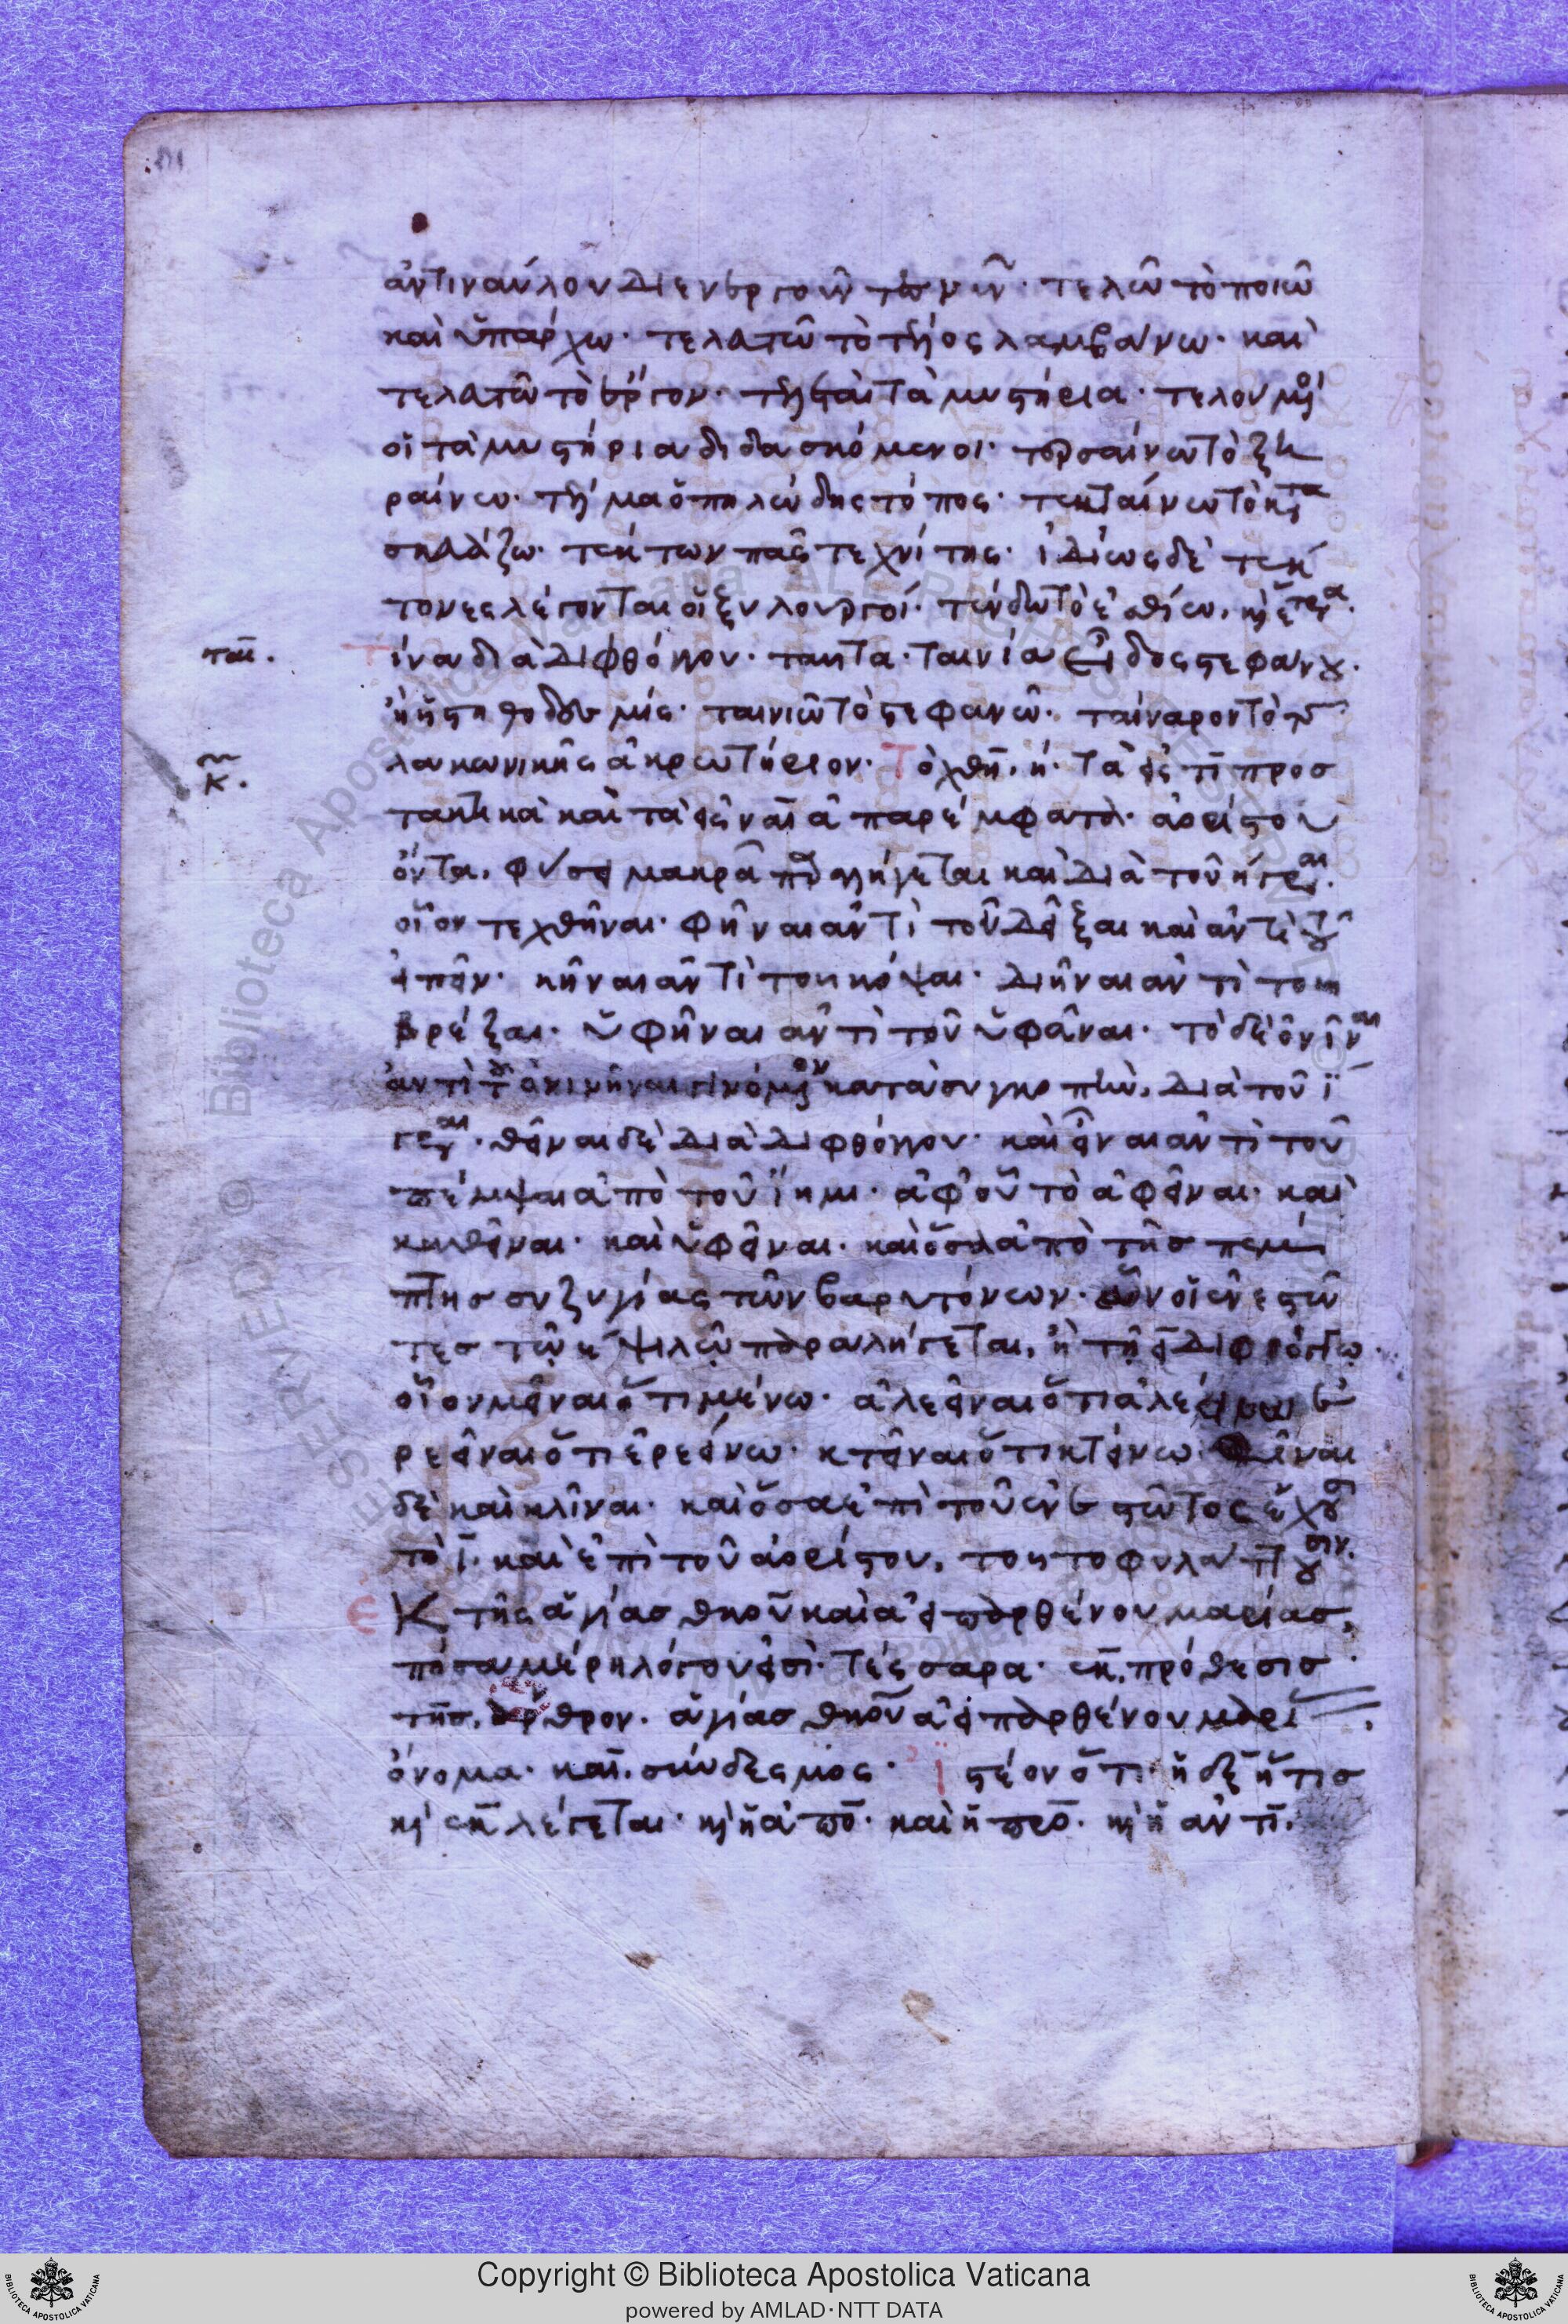 ἀντιναύλου διενεργουν τελῶ τὸ ποιῶ
καὶ ὑπάρχω· τελευτῶ τὸ τέλος λαμβάνω· καὶ
τελευτῶ τὸ ἔργον· τὰ μυστήρια· τελούμενοι
οἱ τὰ μυστήρια διδασκόμενοι· τερσαίνω τὸ ξη
ραίνω· τέλμα ὁ πηλώδης τόπος· τεκταίνω τὸ κατα
σκευάζω· τέκτων πᾶς τεχνίτης· ἰδίως δὲ τέκ
τονες λέγονται οἱ ξυλουργοί· τένδω τὸ ἐσθίω, καὶ ἕτερα.
ται. τινα διὰ διφθόγγου· ταῦτα· ταινία εἶδος στεφάνου.
ἢ ἡ στηθοδεσμίς· ταινιῶ τὸ στεφανῶ· ταίναρον τὸ τῆς
λακωνικῆς ἀκρωτήριον· Τεχθῆναι· τὰ εἰς τι προσ
κ. τακτικὰ καὶ τὰ εἰς ναι ἀπαρέμφατα· ἀορίστου
ὄντα, φύσει μακρᾷ παραλήγεται καὶ διὰ τοῦ η γράφεται.
οἷον τεχθῆναι· φῆναι ἀντὶ τοῦ δεῖξαι καὶ ἀντὶ τοῦ
εἰπεῖν· κῆναι ἀντὶ τοῦ κόψαι· διῆναι ἀντὶ τοῦ
βρέξαι· ὑφῆναι ἀντὶ τοῦ ὑφᾶναι· τὸ δὲ ὀνῖναι
ἀντὶ τοῦ ὀνινῆναι γινόμενον κατὰ συγκοπὴν, διὰ τοῦ ϊ
γράφεται. θεῖναι δὲ διὰ διφθόγγου· καὶ εἶναι ἀντὶ τοῦ
πέμψαι ἀπὸ τοῦ ἵημι· ἀφ' οὗ τὸ ἀφεῖναι· καὶ
καθεῖναι· καὶ ὑφεῖναι· καὶ ὅσα ἀπὸ τῆς πέμ
πτης συζυγίας τῶν βαρυτόνων· ὧν οἱ ἐνεστῶ
τες τῷ ε ψιλῷ παραλήγεται, ἢ τῇ ει διφθόγγῳ·
οἷον μεῖναι ὅτι μένω· ἀλεεῖναι ὅτι ἀλεείνω ἐ
ρεεῖναι ὅτι ἐρεείνω· κτεῖναι ὅτι κτείνω· κρῖναι
δὲ καὶ κλῖναι· καὶ ὅσα ἐπὶ τοῦ ἐνεστῶτος ἔχουσι
τὸ ϊ· καὶ ἐπὶ τοῦ ἀορίστου, τοῦτο φυλάττουσιν.
Ἐκ τῆς ἁγίας θεοτόκου καὶ ἀειπαρθένου μαρίας,
πόσα μέρη λόγου εἰσὶ· τέσσαρα· ἐκ, πρόθεσις
τῆς, ἄρθρον· ἁγίας θεοτόκου ἀειπαρθένου μαρί
ὄνομα· καὶ, σύνδεσμος· ἰστέον ὅτι ἡ ἐξ ἥτις
καὶ ἐκ λέγεται· καὶ ἡ ἀπὸ· καὶ ἡ πρὸ· καὶ ἡ ἀντὶ·
Copyright © Biblioteca Apostolica Vaticana
powered by AMLAD·NTT DATA